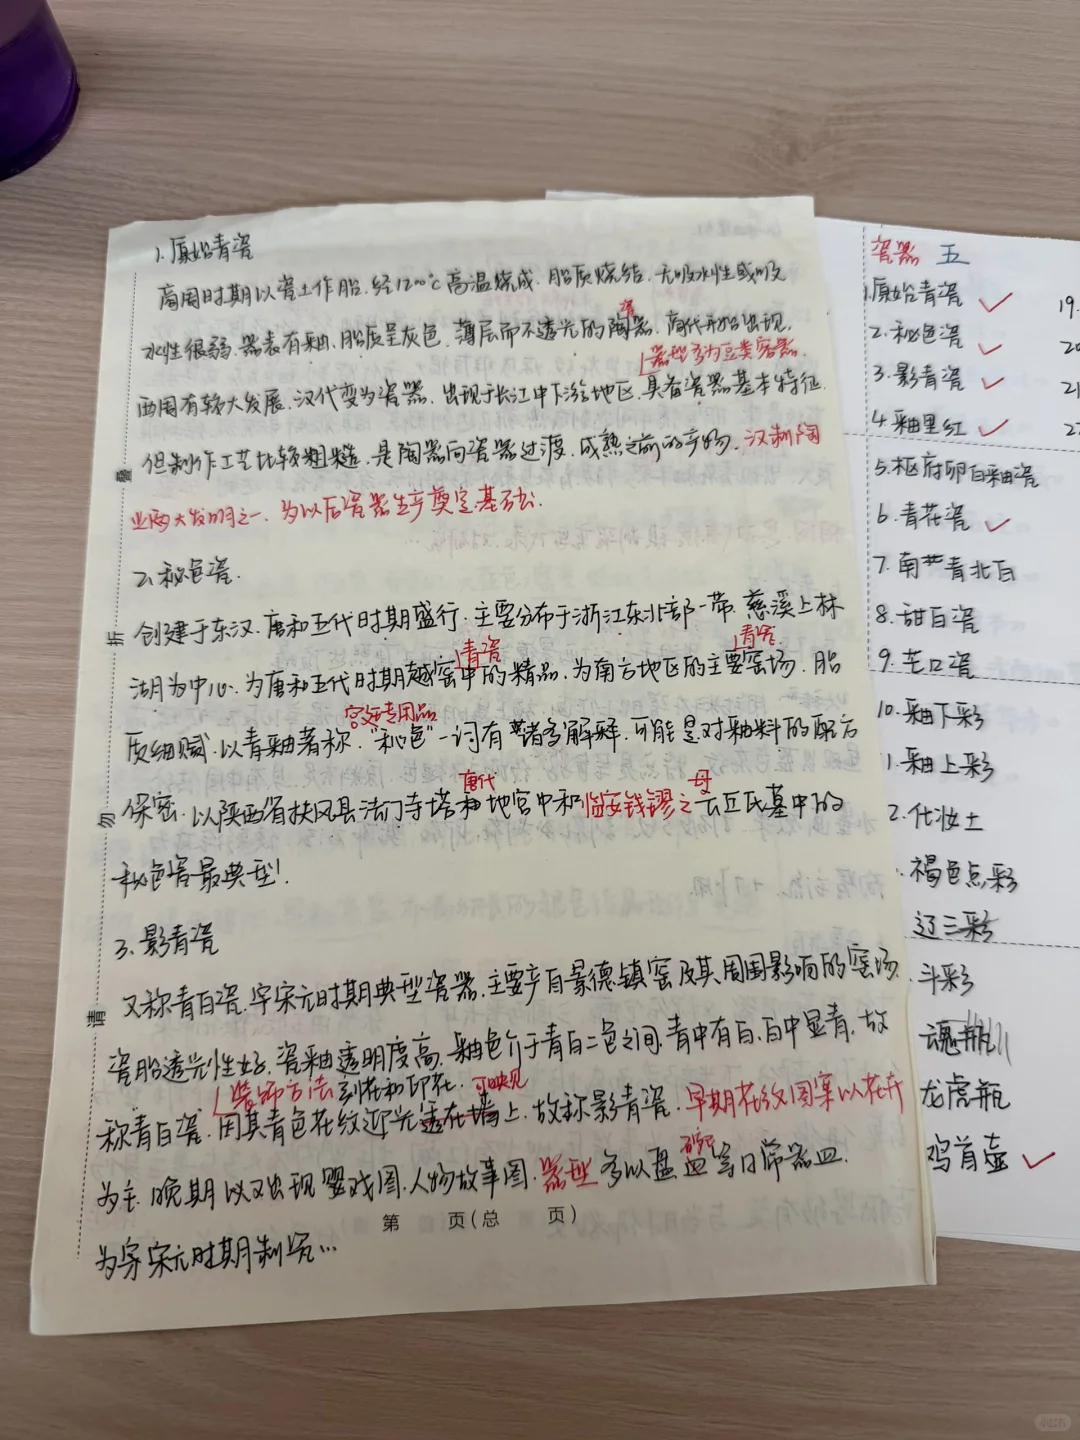 1.原始青瓷
商周时期以瓷土作胎.经1200℃高温烧成.胎质烧结.无吸水性或吸
瓷
水性很弱.器表有釉.胎质呈灰色.薄层而不透光的陶器.商代开始出现.
器型多为豆类容器.
西周有较大发展.汉代变为瓷器.出现于长江中下游地区.具备瓷器基本特征
但制作工艺比较粗糙.是陶器向瓷器过渡.成熟之前的产物.汉制陶
业两大发明之一.为以后瓷器生产奠定基础.
叠
2.秘色瓷.
创建于东汉.唐和五代时期盛行.主要分布于浙江东北部一带.慈溪上林
折
青瓷
青瓷
湖为中心.为唐和五代时期越窑中的精品.为南方地区的主要窑场.胎
宫廷专用品
质细腻.以青釉著称.“秘色”一词有诸多解释.可能是对釉料的配方
唐代
母
保密.以陕西省扶风县法门寺塔地宫中和临安钱镠之母水丘氏墓中的
勿
秘色瓷最典型.
3.影青瓷
又称青白瓷.宋元时期典型瓷器.主要产自景德镇窑及其周围影响的窑场.
请
瓷胎透光性好.瓷釉透明度高.釉色介于青白二色之间.青中有白.白中显青.故
装饰方法刻花和印花.可映见
称青白瓷.因其青色花纹迎光透在墙上.故称影青瓷.早期花纹图案以花卉
为主.晚期以又出现婴戏图.人物故事图.器型多以盘皿等日常器皿.
第 页(总 页)
为宋元时期制瓷...
瓷器 五
1.原始青瓷 ✓
2.秘色瓷 ✓
3.影青瓷 ✓
4.釉里红 ✓
5.枢府卵白釉瓷
6.青花瓷 ✓
7.南青北白
8.甜白瓷
9.芒口瓷
10.釉下彩
1.釉上彩
2.化妆土
褐色点彩
辽三彩
斗彩
魂瓶
龙虎瓶
鸡首壶 ✓
19.
20
21